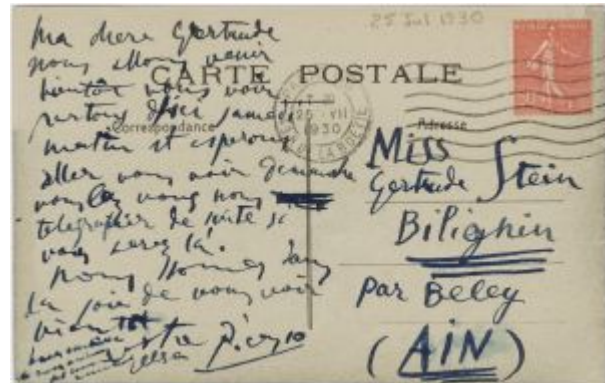 25 Jul 1930
CARTE POSTALE
Correspondance
Adresse
Ma chere Gertrude
nous allons venir
bientot vous voir
partons d'ici samedi
matin et esperons
aller vous voir dimanche
voulez vous nous
telegraphier de suite si
vous serez la.
nous sommes dans
la joie de vous voir
Votre Picasso
25 VII
1930
LA BOETIE
Miss
Gertrude Stein
Bilignin
par Beley
(AIN)